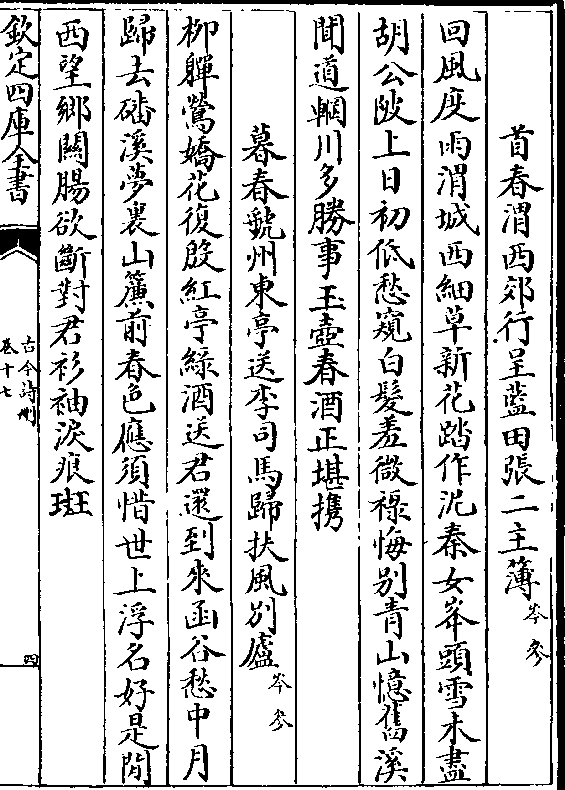 首春渭西郊行呈藍田張二主簿 岑參
回風度雨渭城西細草新花踏作泥秦女峯頭雪未盡
胡公陂上日初低愁窺白髮羞微祿悔別青山憶舊溪
聞道輞川多勝事玉壺春酒正堪攜
暮春虢州東亭送李司馬歸扶風別廬 岑參
柳嚲鶯嬌花復殷紅亭緑酒送君還到來函谷愁中月
歸去磻溪夢裏山簾前春色應須惜世上浮名好是閒
西望鄉關腸欲斷對君衫袖淚痕斑
欽定四庫全書
古今詩刪
卷十七
四